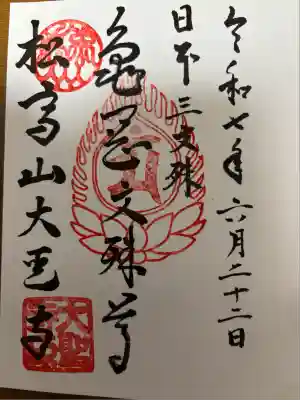 令和七年六月二十二日
日本三文殊
亀岡文殊尊
松高山大聖寺